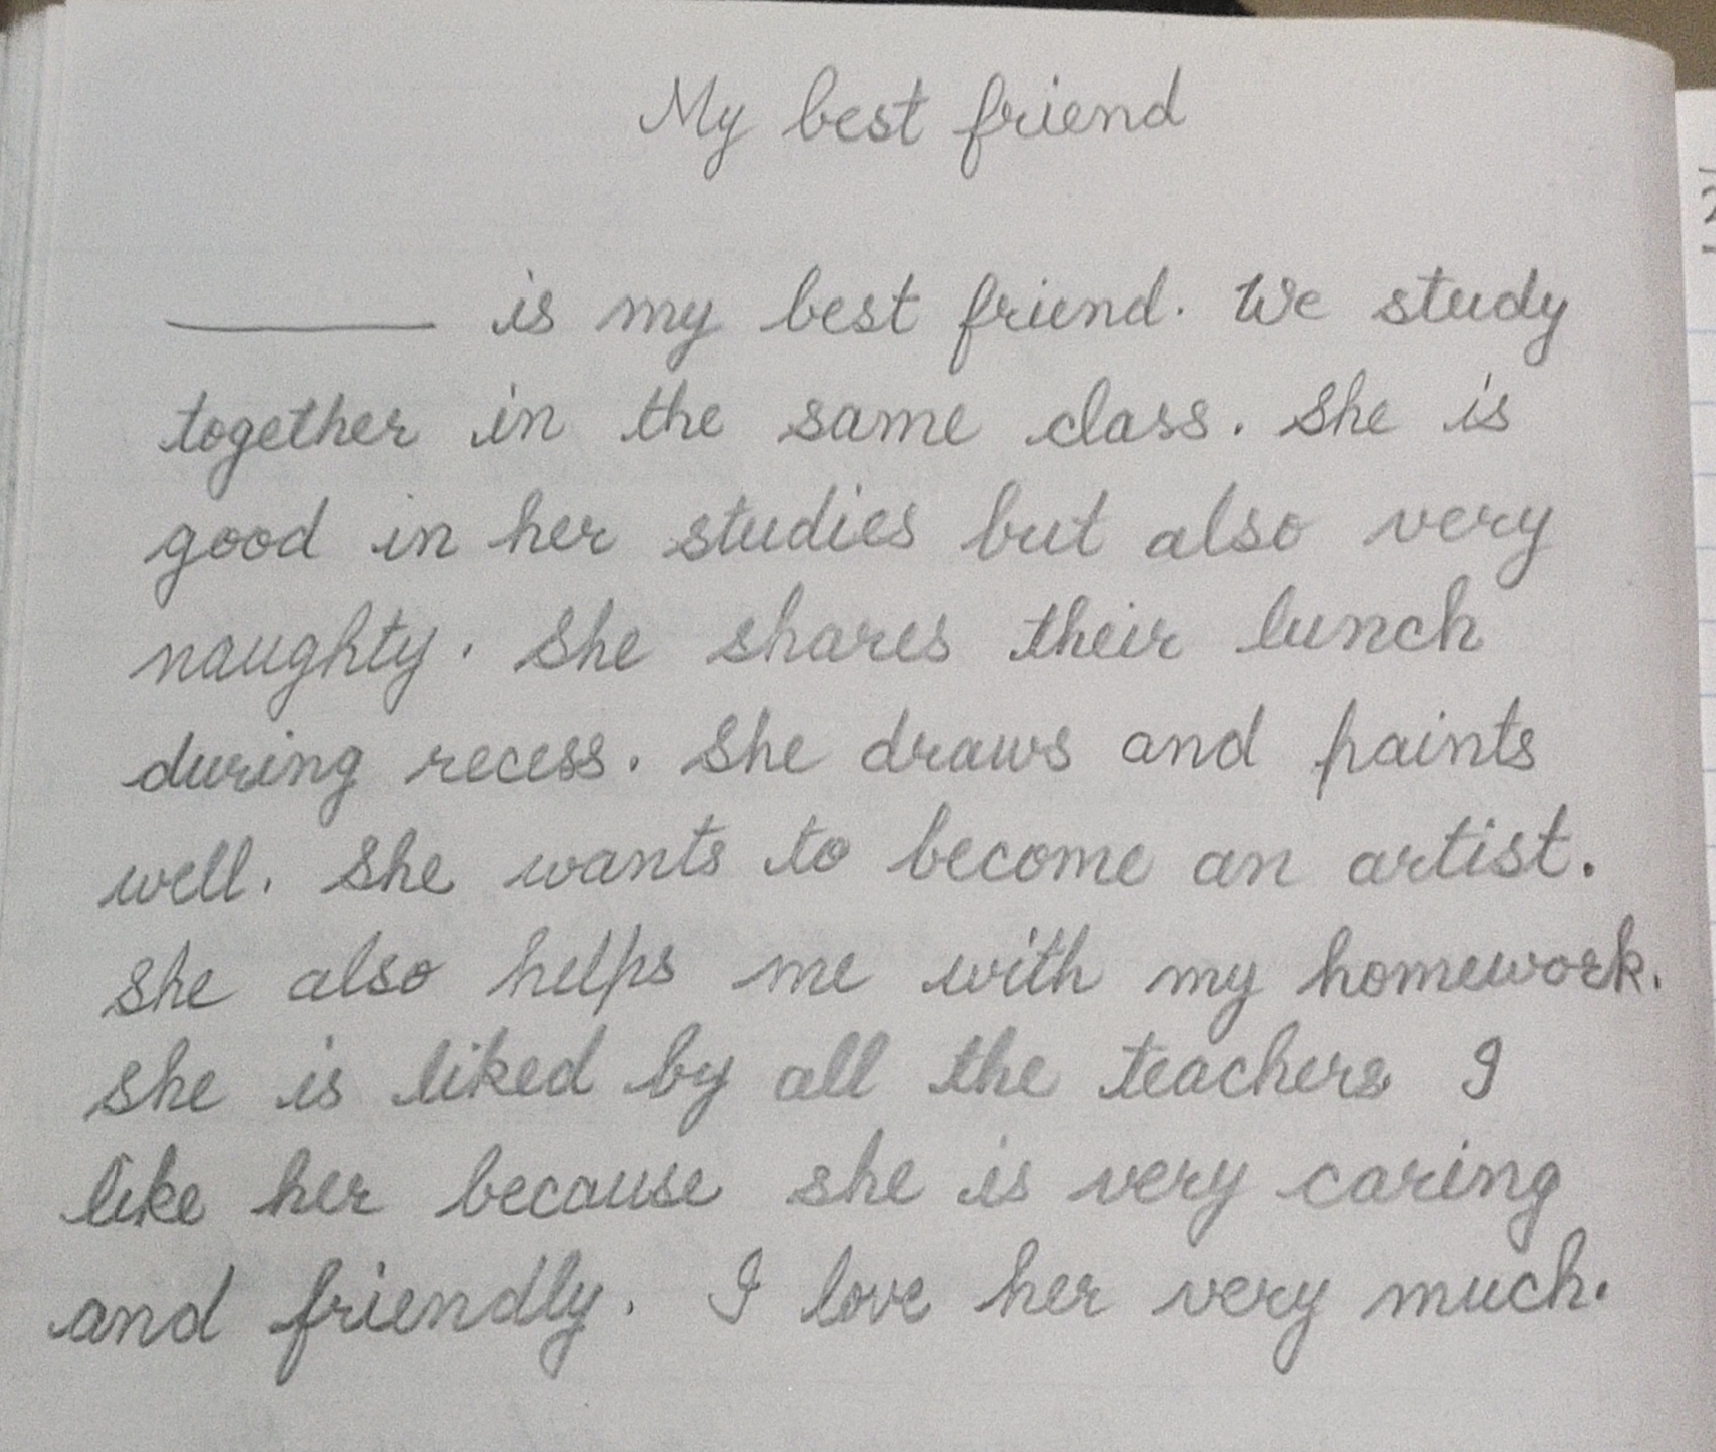 My best friend
______ is my best friend. We study
together in the same class. She is
good in her studies but also very
naughty. She shares their lunch
during recess. She draws and paints
well. She wants to become an artist.
She also helps me with my homework.
She is liked by all the teachers I
like her because she is very caring
and friendly. I love her very much.